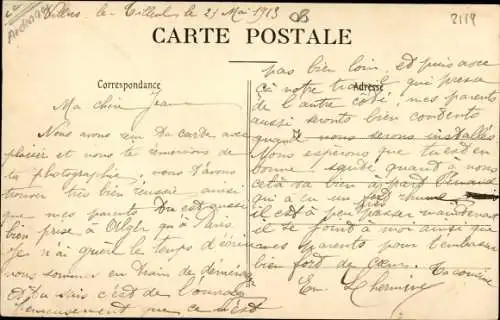 Villers le Tilleul le 21 Mai 1913
2119
CARTE POSTALE
Correspondance
Adresse
Ma chère Jeanne
Nous avons reçu ta carte avec
plaisir et nous te remercions de
ta photographie, nous t'avons
trouvé très bien réussie ainsi
que mes parents. Tu es aussi
bien prise à qu'à Paris
Je n'ai guère le temps d'écrire
nous sommes en train de déménager
et tu sais c'est de l'ouvrage
heureusement que ce n'est
pas bien loin. Et puis avec
ça notre travail qui presse
de l'autre côté, mes parents
aussi seront bien contents
quand nous serons installés
Nous espérons que tu es en
bonne santé quant à nous
cela va bien à part
qui a eu un fort rhume
il est à peu passer maintenant
il se joint à moi ainsi que
mes parents pour t'embrasser
bien fort de Cœur. Ta cousine
Em. Lhermine